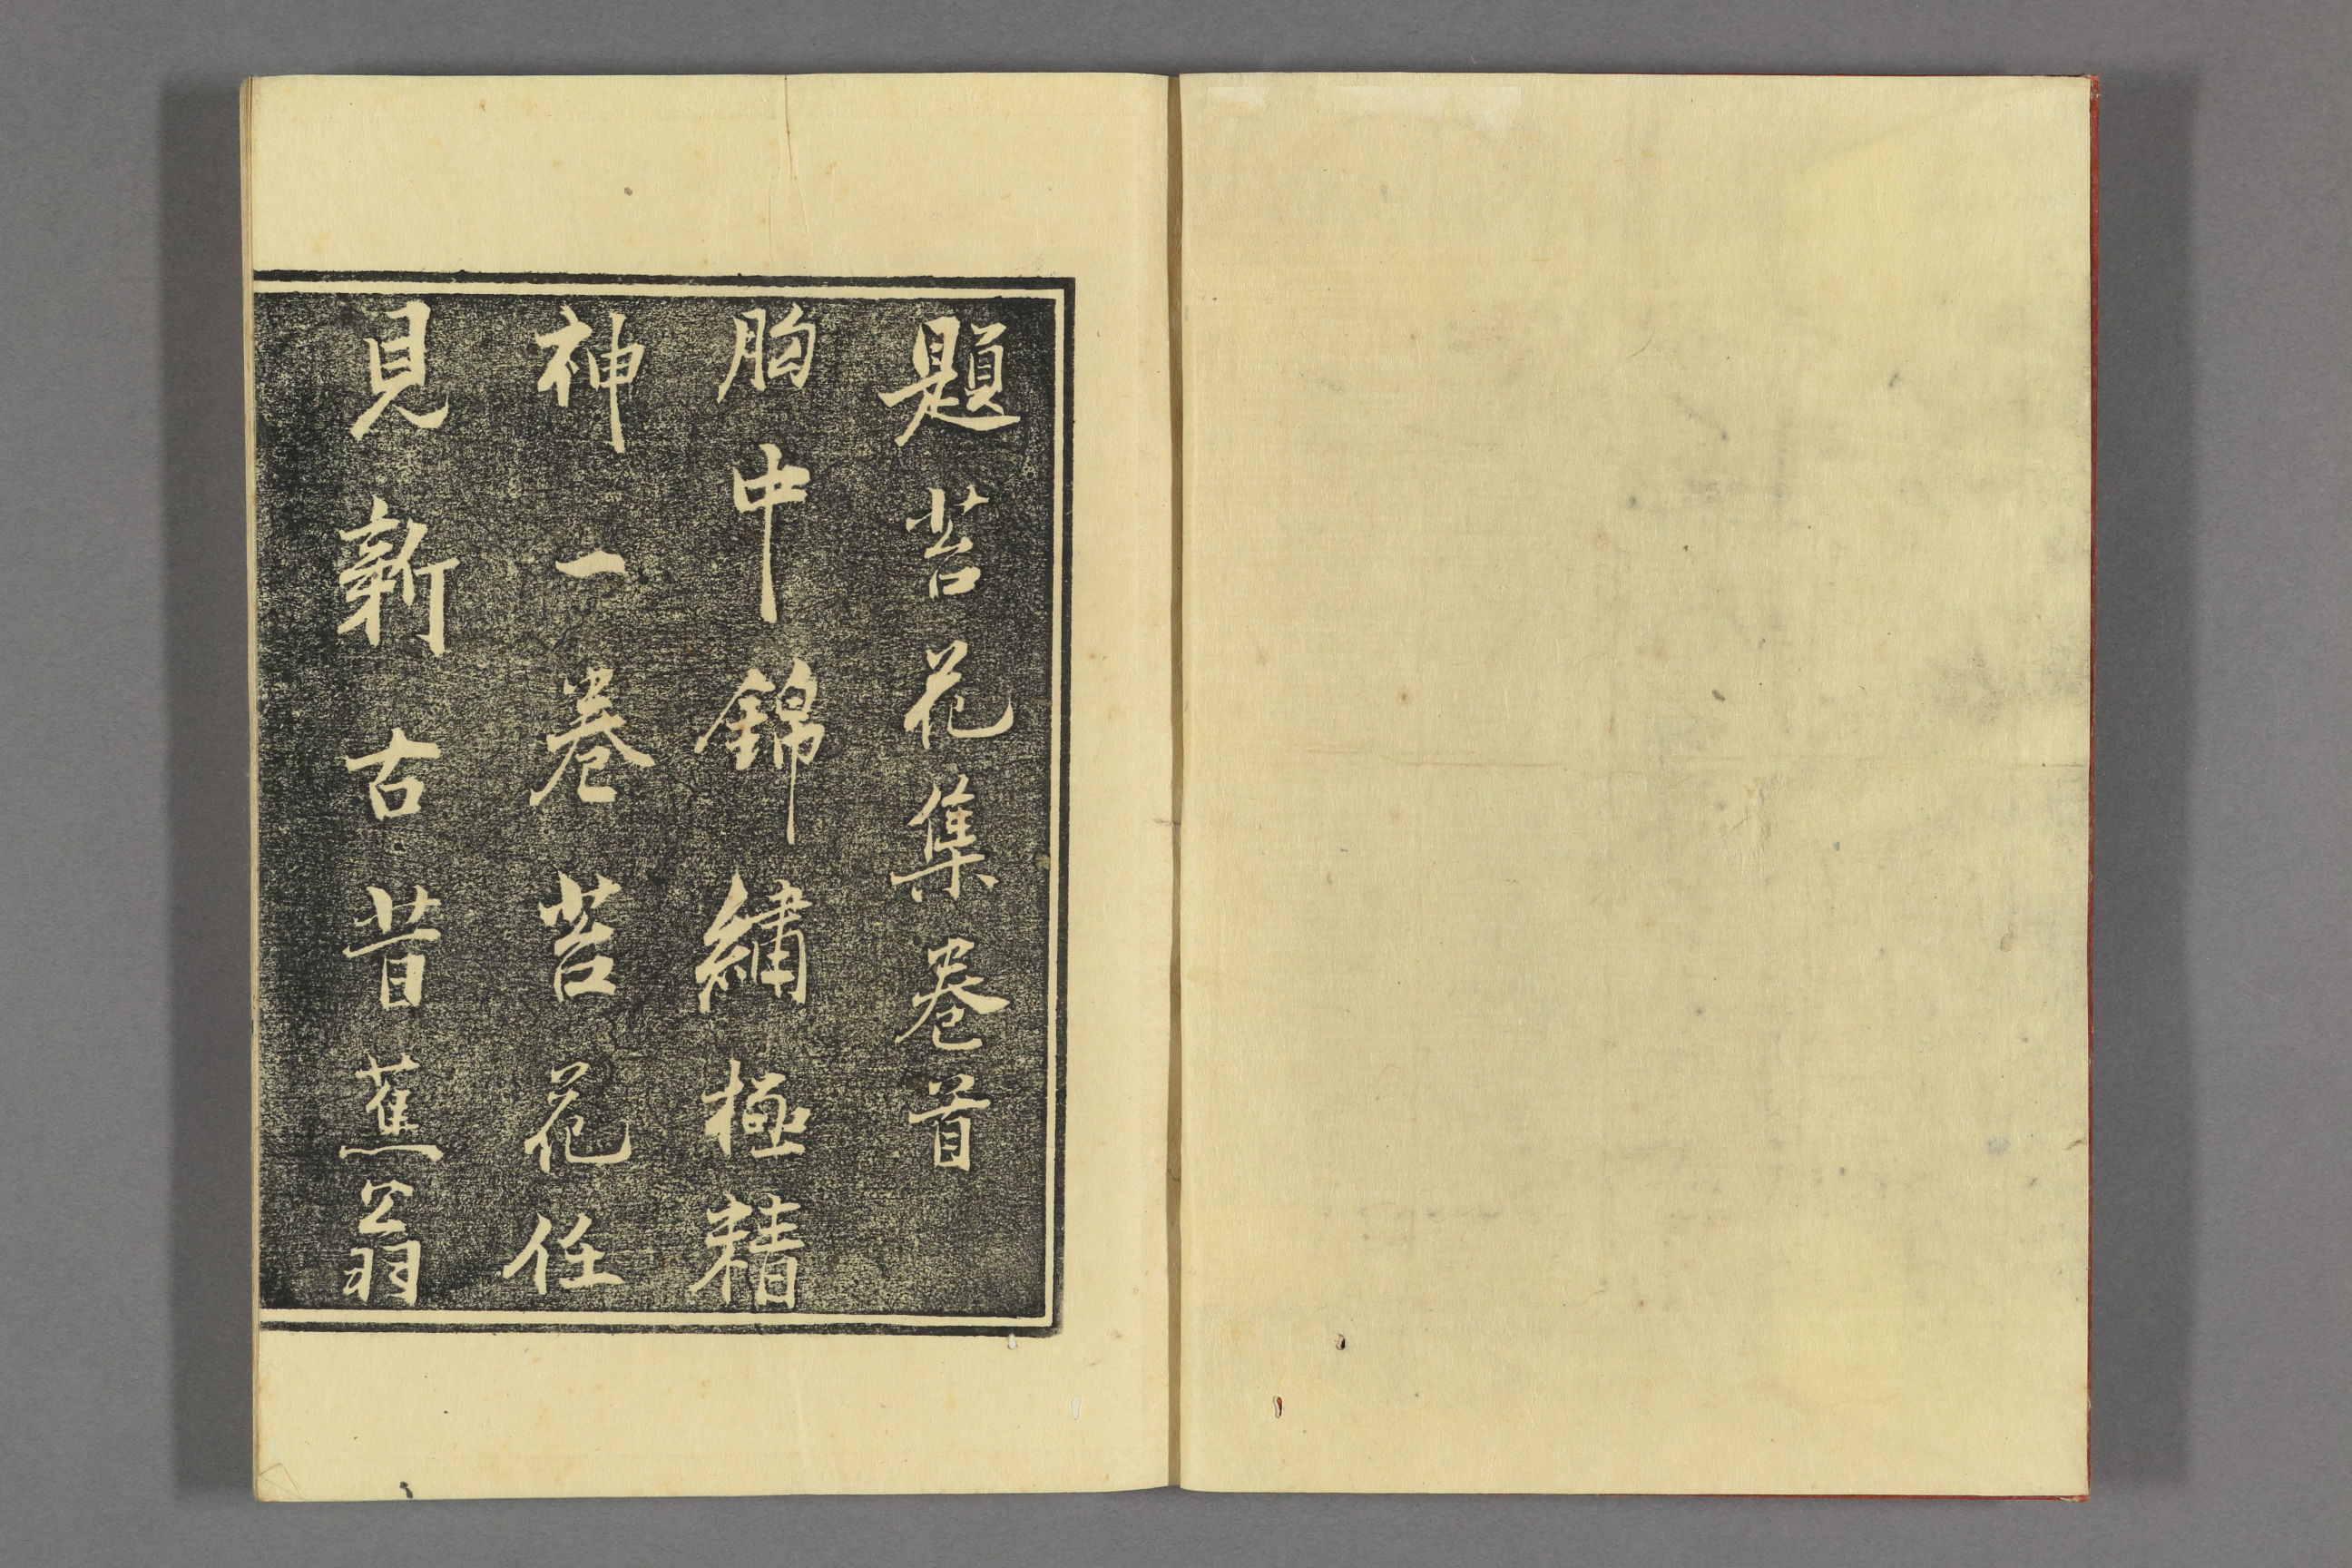 題苔花集巻首
胸中錦繡極精
神一巻苔花任
見新古昔蕉翁